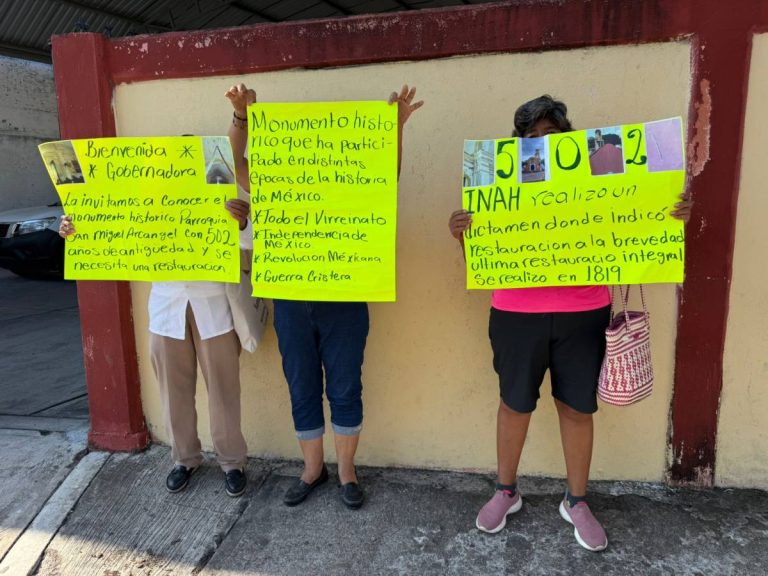 Bienvenida *
* Gobernadora
La invitamos a conocer el
monumento historico Parroquia
San Miguel Arcangel con 502
años de antigüedad y se
necesita una restauracion
Monumento histo-
rico que ha partici-
pado en distintas
épocas de la historia
de México.
* Todo el Virreinato
* Independencia de
México.
* Revolución Méxicana
* Guerra Cristera.
502
INAH realizo un
dictamen donde indicó
restauracion a la brevedad
ultima restauracio integral
se realizo en 1819